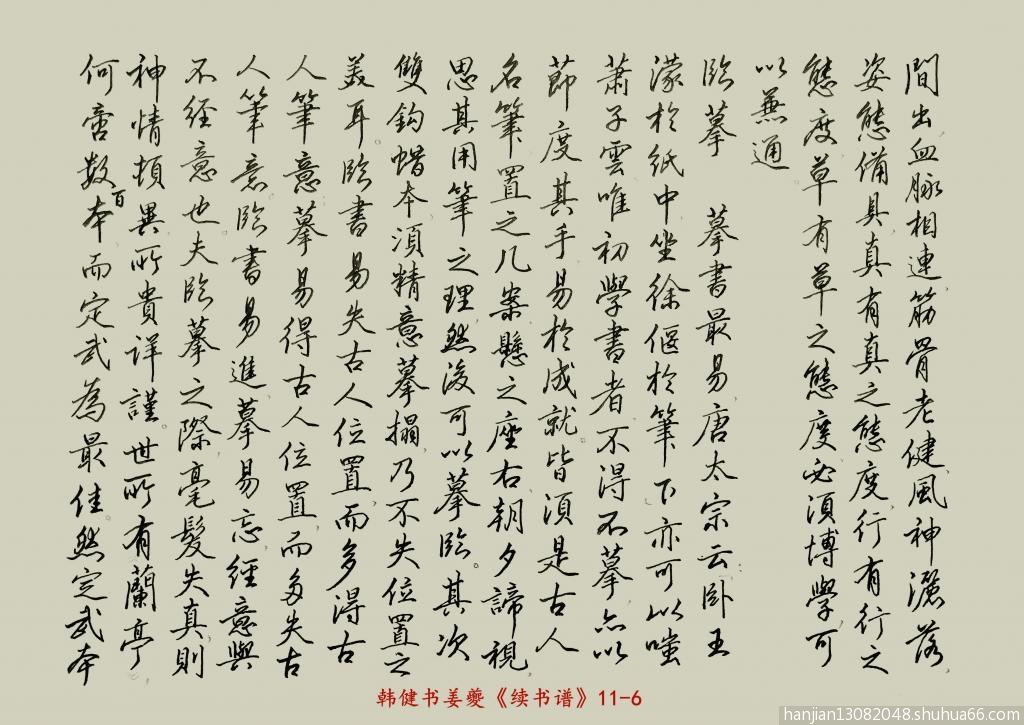 間出血脉相連筋骨老健風神灑落
姿態備具真有真之態度行有行之
態度草有草之態度必須博學可
以兼通
臨摹 摹書最易唐太宗云卧王
濛於紙中坐徐偃於筆下亦可以嗤
蕭子雲唯初學書者不得不摹亦以
節度其手易於成就皆須是古人
名筆置之几案懸之座右朝夕諦視
思其用筆之理然後可以摹臨其次
雙鈎蠟本須精意摹搨乃不失位置之
美耳臨書易失古人位置而多得古
人筆意摹易得古人位置而多失古
人筆意臨書易進摹易忘經意與
不經意也夫臨摹之際毫髮失真則
神情頓異所貴詳謹世所有蘭亭
何啻數百本而定武為最佳然定武本
韩健书姜夔《续书谱》11-6
hanjian13082048.shuhua66.com